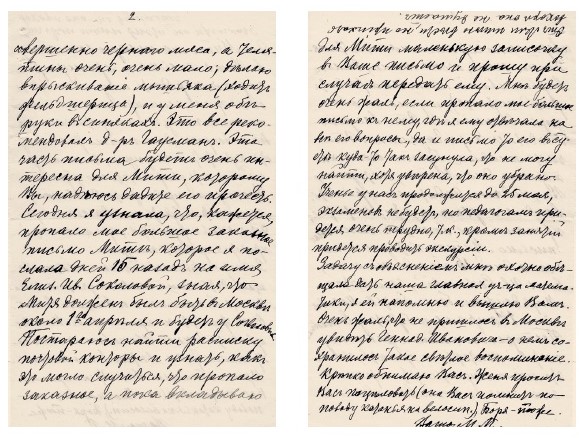 2.
совершенно черного мяса, а теля-
тины очень, очень мало; делаю
впрыскивание мышьяка (ходит
фельдшерица), и у меня обе
руки в синяках. Это все реко-
мендовал д-ръ Гаусман. Эта
часть письма будет очень ин-
тересна для Мити, которому
Вы, надеюсь дадите его прочесть.
Сегодня я узнала, что, кажется,
пропало мое большое заказное
письмо Мите, которое я по-
слала дней 15 назад на имя
Елиз. Ив. Соколовой, зная, что
Митя должен был быть в Москве
около 1го апреля и будет у Соколовой
Постараюсь найти расписку
почтовой конторы и узнать, как
это могло случиться, что пропало
заказное, а пока вкладываю
для Мити маленькую записочку
в Ваше письмо и прошу при
случае передать ему. Мне будет
очень жаль, если пропало мое большое
письмо к нему, т.к. я ему отвечала на
все его вопросы, да и письмо то его вчера
куда-то так засунула, что не могу
найти, хотя уверена, что оно убрано.
Ученье у нас продолжается до 25 мая,
экзаменов не будет, но педагогам при-
дется очень трудно, т.к., кроме занятий
придется проводить экскурсии.
Задачу с объяснением мне охотно обе-
щала дать наша главная уч-ца матема-
тики, я ей напомню и вышлю Вам.
Очень жаль, что не пришлось в Москве
увидеть Геннад. Ивановича - о нем со-
хранилось такое светлое воспоминание.
Крепко обнимаю Вас. Женя просит
Вас поцеловать (она Вас помнит по
поводу катанья на велосип.) Боря - тоже.
Ваша М. М.